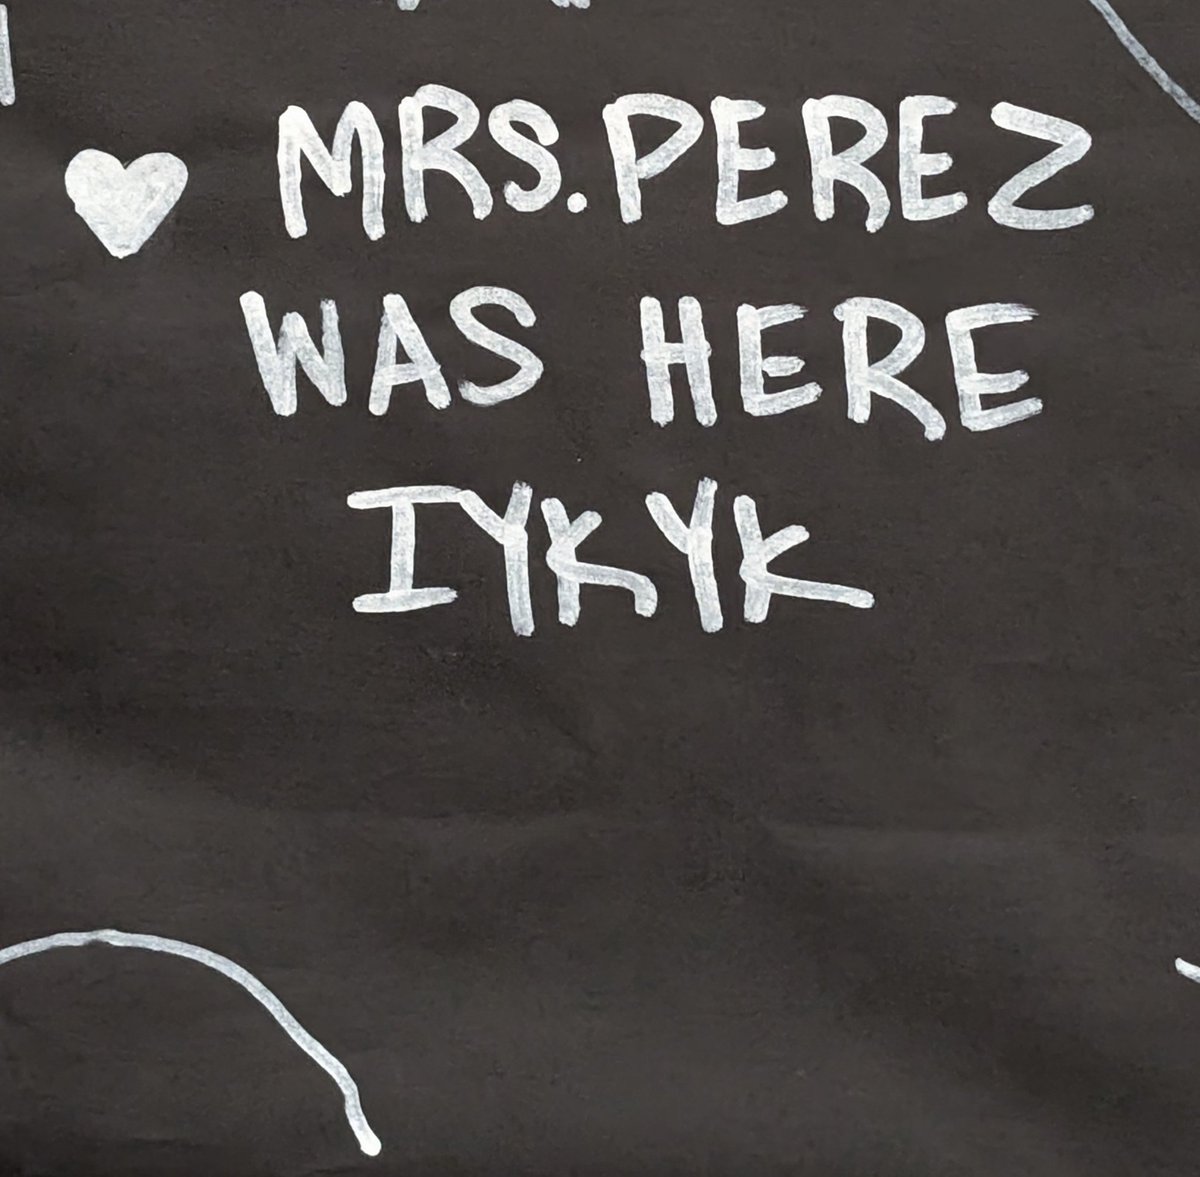 MRS. PEREZ
WAS HERE
IYKYK